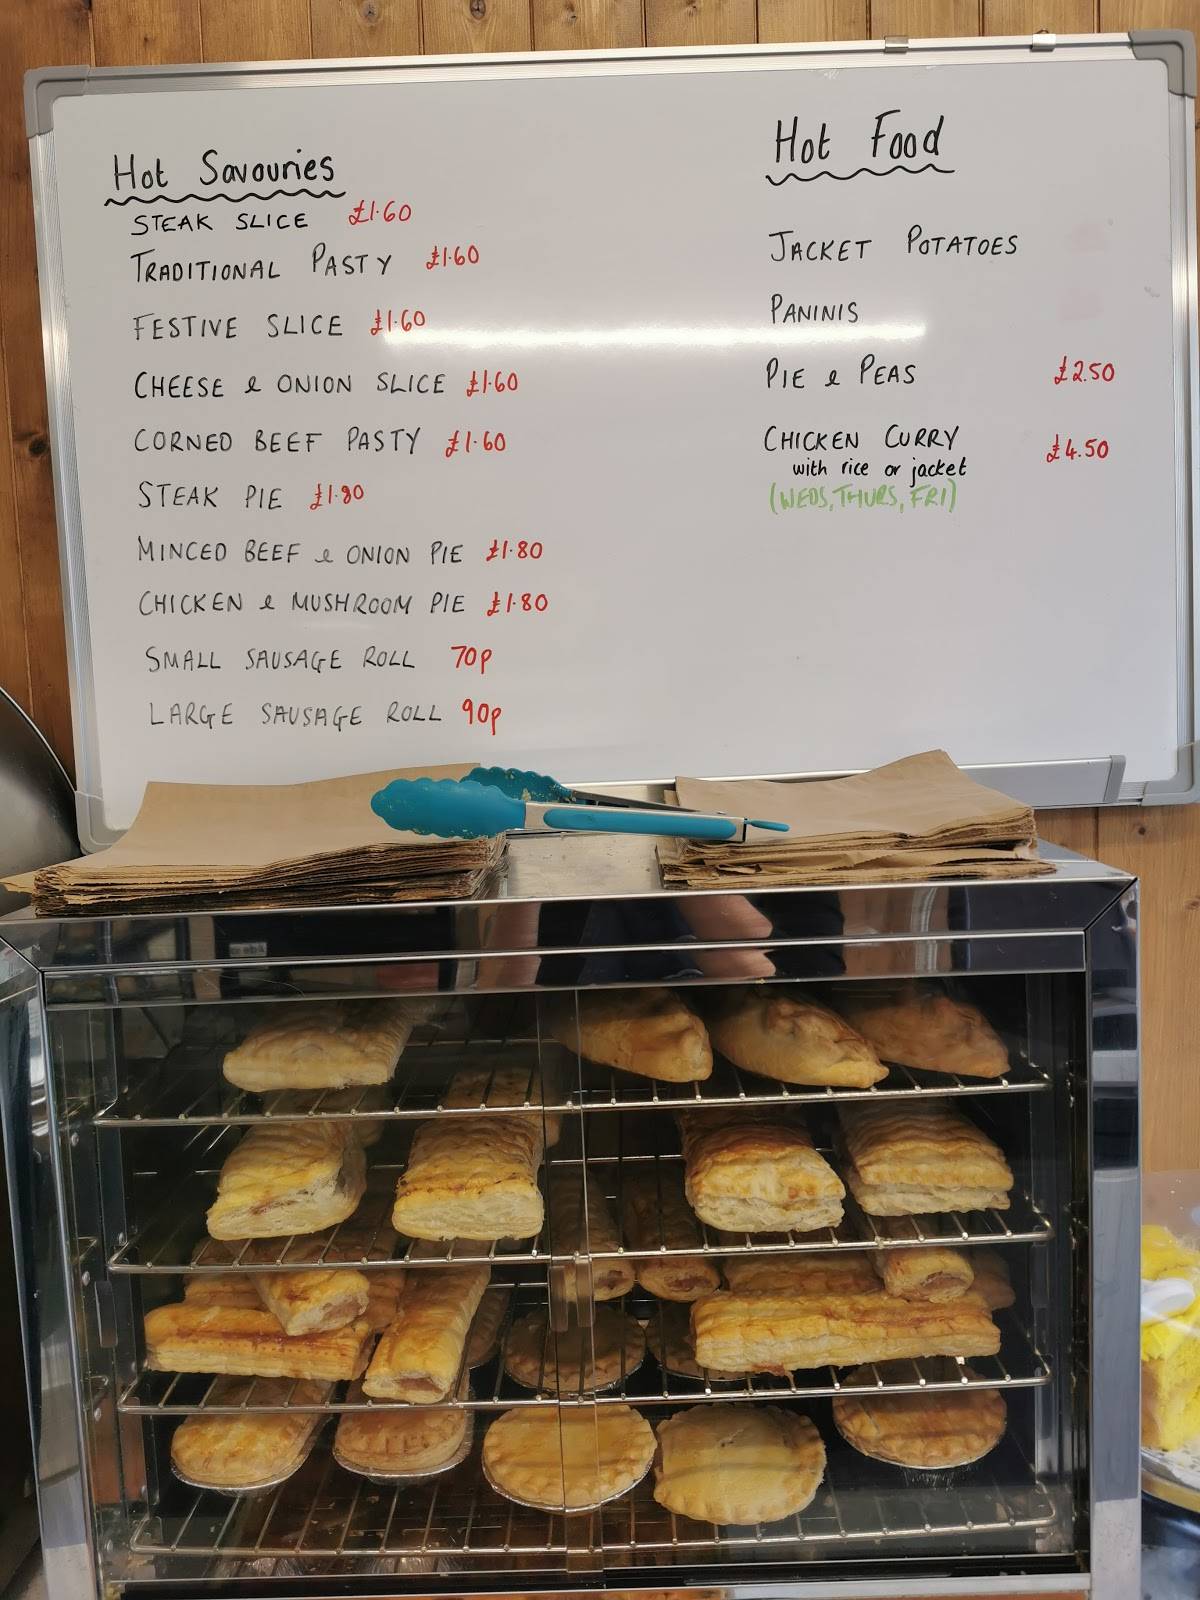 Hot Savouries
STEAK SLICE £1.60
TRADITIONAL PASTY £1.60
FESTIVE SLICE £1.60
CHEESE & ONION SLICE £1.60
CORNED BEEF PASTY £1.60
STEAK PIE £1.80
MINCED BEEF & ONION PIE £1.80
CHICKEN & MUSHROOM PIE £1.80
SMALL SAUSAGE ROLL 70p
LARGE SAUSAGE ROLL 90p
Hot Food
JACKET POTATOES
PANINIS
PIE & PEAS £2.50
CHICKEN CURRY £4.50
with rice or jacket
(WEDS, THURS, FRI)